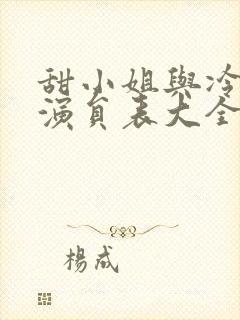 甜小姐與冷
演員表大全
楊成